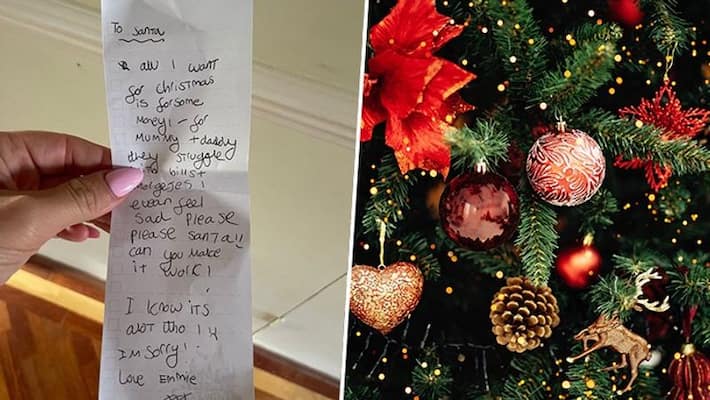 To Santa
all I want
for christmas
is for some
money! - for
mummy + daddy
they struggle
with bills +
morgeses!
I evean feel
sad please
please santa!!
can you make
it work!
I know its
alot tho!
I'm sorry!
Love Emmie
xxx